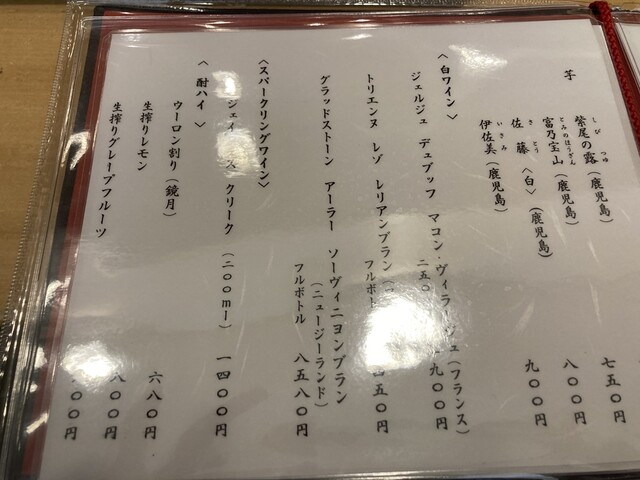 芋
しび つゆ
紫尾の露(鹿児島) 七五〇円
とみのほうざん
富乃宝山(鹿児島) 八〇〇円
さとう
佐藤 〈白〉(鹿児島) 九〇〇円
いさみ
伊佐美(鹿児島)
〈白ワイン〉
ジェルジュ デュブッフ マコン・ヴィラージュ(フランス)
二五〇 九〇〇円
トリエンヌ レゾ レリアンブラン
フルボト 四五〇円
グラッドストーン アーラー ソーヴィニヨンブラン
(ニュージーランド)
フルボトル 八五八〇円
〈スパークリングワイン〉
ジェイ ス クリーク (二〇〇ml) 一四〇〇円
〈酎ハイ〉
ウーロン割り(鏡月) 六八〇円
生搾りレモン 八〇〇円
生搾りグレープフルーツ 〇〇円